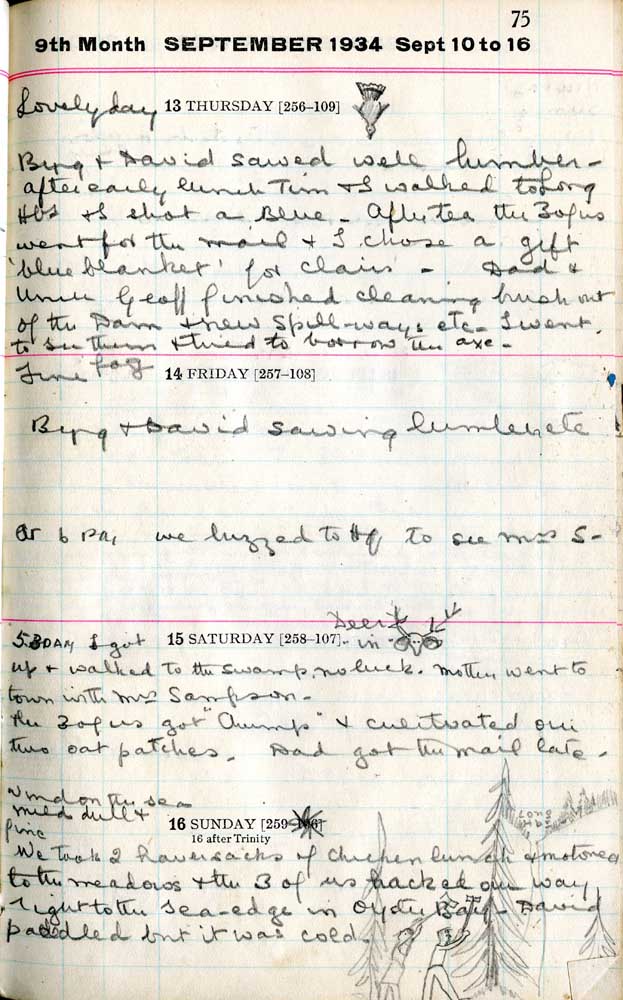 75
9th Month SEPTEMBER 1934 Sept 10 to 16
Lovely day 13 THURSDAY [256–109]
Byng & David sawed well lumber –
after early lunch Tim & I walked to Long
Hbr & I shot a Blue – After tea the 3 of us
went for the mail & I chose a gift
'blue blanket' for Clairi – Dad &
Geoff finished cleaning brush out
of the Dam & new Spill-ways etc – I went
to see them & tried to borrow the axe –
Fine fog 14 FRIDAY [257–108]
Byng & David sawing lumber etc
At 6 P.M. we buzzed to Hq to see Mrs S –
Deer
5.30 AM I got 15 SATURDAY [258–107] – in
up & walked to the swamp, no luck. Mother went to
town with Mrs Sampson –
the 3 of us got "Chumps" & cultivated our
two oat patches – Dad got the mail late –
Wind on the sea
mild dull &
fine 16 SUNDAY [259–106]
16 after Trinity
LONG
HBR
We took 2 haversacks of chicken lunch & motored
to the meadows & the 3 of us hacked our way
right to the sea-edge in Oyster Bay – David
paddled but it was cold.